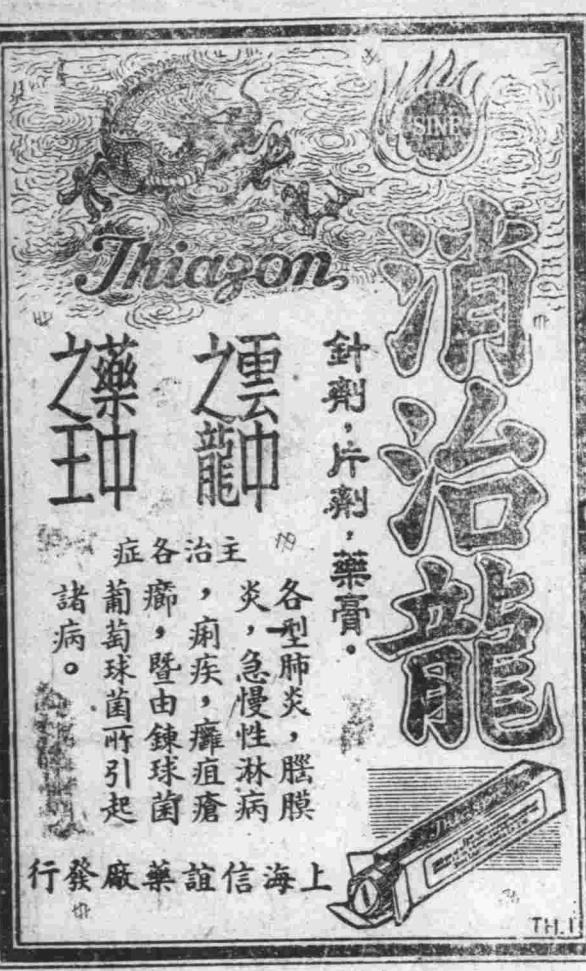 SINE
Thiazon
消治龍
針劑，片劑，藥膏。
雲中之龍
藥中之王
主治各症
各型肺炎，腦膜
炎，急慢性淋病
，痢疾，癰疽瘡
癤，暨由鍊球菌
葡萄球菌所引起
諸病。
Thiazon
上海信誼藥廠發行